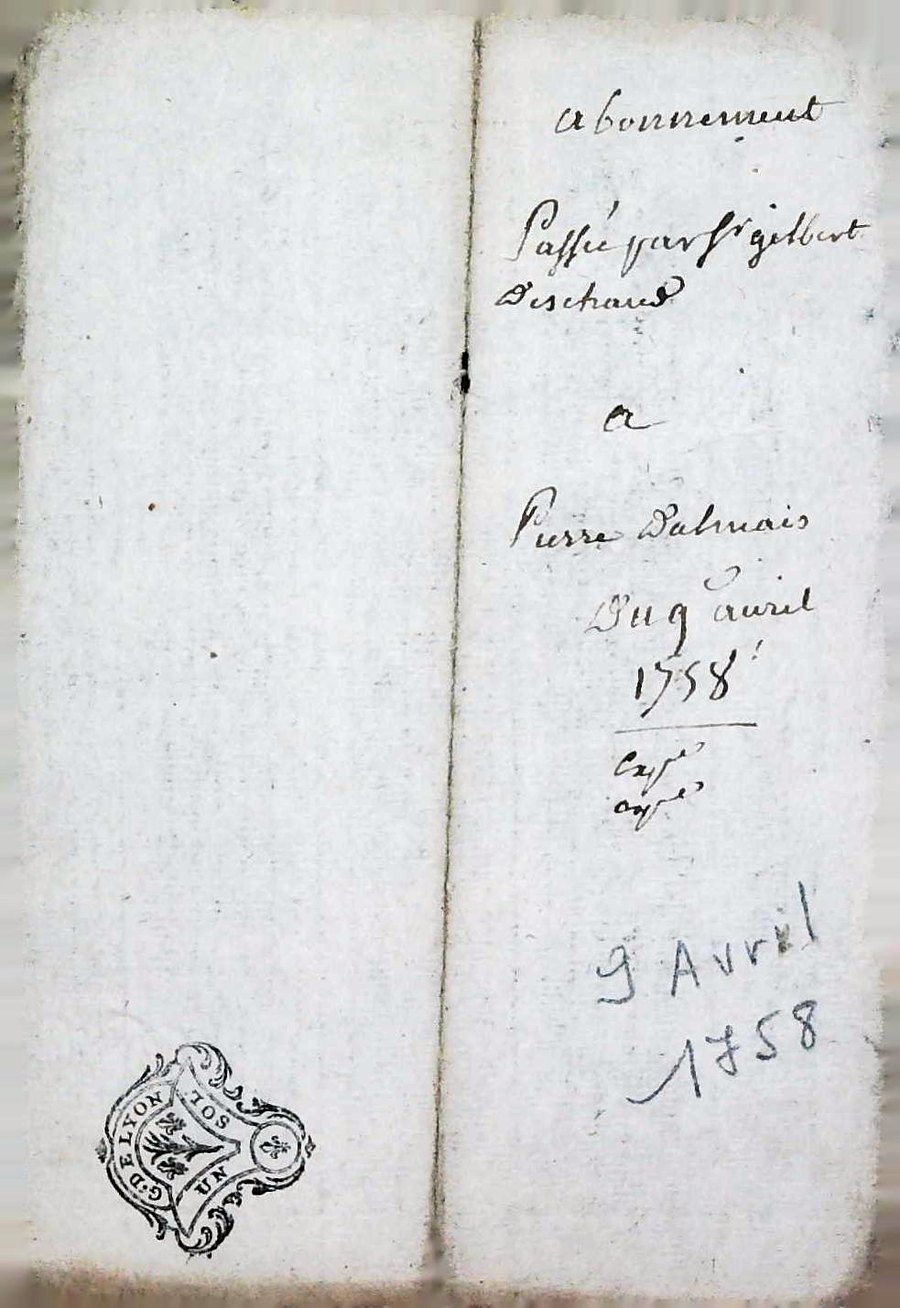 abonnement
Passé par Sr gilbert
Deschaud
a
Pierre Dalmais
Du 9e auril
1758
9 Avril
1758
G. DE LYON
UN SOL